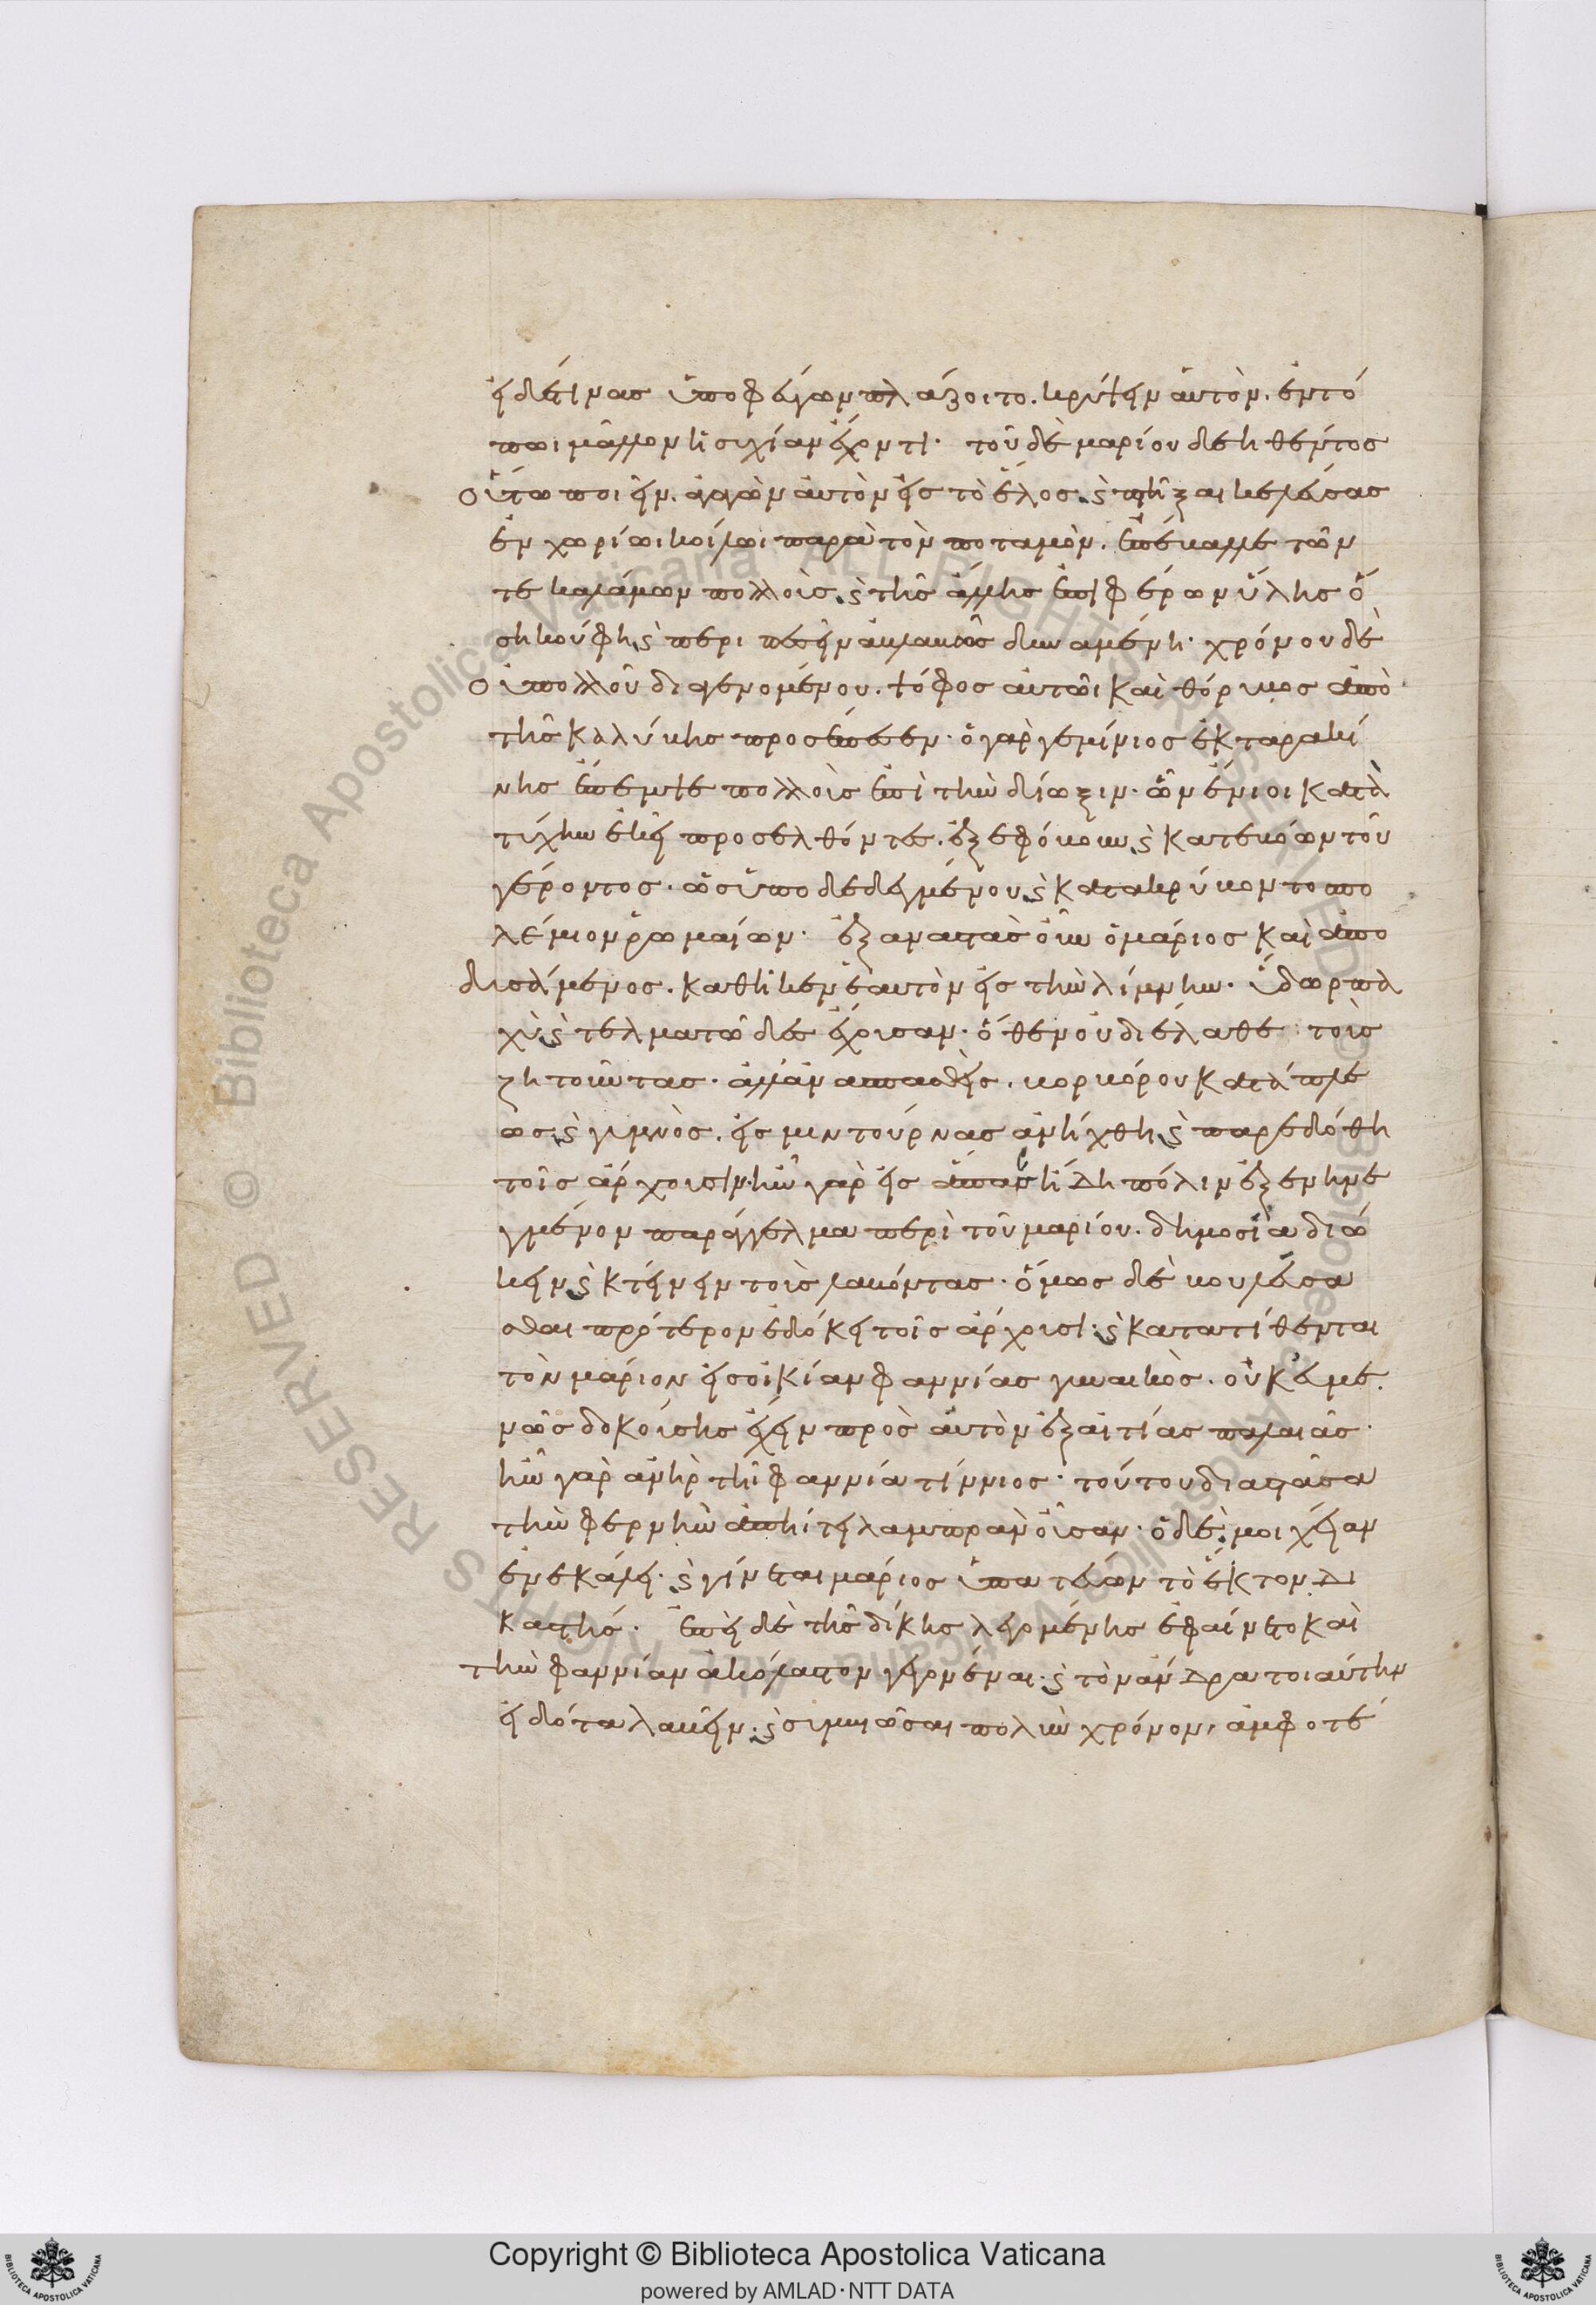 εἰ δέ τινας ὑποφεύγων πλάζοιτο. κρύψειν αὐτὸν. ἐν τό
πωι μᾶλλον ἡσυχίαν ἔχοντι· τοῦ δὲ μαρίου δεηθέντος
οὕτω ποιεῖν. ἀγαγὼν αὐτὸν εἰς τὸ ἕλος. καὶ πτῆξαι κελεύσας
ἐν χωρίωι κοίλωι παρὰ τὸν ποταμὸν. ἐπέβαλλε τῶν
τε καλάμων πολλοὺς. καὶ τῆς ἄλλης ἐπιφέρων ὕλης ὅ
ση κούφη, καὶ περιπεσεῖν ἀβλαβῶς δυναμένη· χρόνου δὲ
οὐ πολλοῦ διαγενομένου. ψόφος αὐτῶι καὶ θόρυβος ἀπὸ
τῆς καλύβης προσέπεσεν· ὁ γὰρ γεμίνιος ἐκ ταρακί
νης ἔπεμψε πολλοὺς ἐπὶ τὴν δίωξιν· ὧν ἔνιοι κατὰ
τύχην ἐκεῖ προσελθόντες. ἐξεφόβουν, καὶ κατεβόων τοῦ
γέροντος· ὡς ὑποδεδεγμένου, καὶ κατακρύβοντος πο
λέμιον ῥωμαίων· ἐξαναστὰς οὖν ὁ μάριος καὶ ἀπο
δυσάμενος. καθῆκεν ἑαυτὸν εἰς τὴν λίμνην· ὕδωρ πα
χὺ, καὶ τελματῶδες ἔχουσαν· ὅθεν οὐ διέλαθε τοὺς
ζητοῦντας· ἀλλ' ἀνασπασθεὶς. βορβόρου κατάπλε
ως, καὶ γυμνὸς. εἰς μιντούρνας ἀνήχθη, καὶ παρεδόθη
τοῖς ἄρχουσιν· ἦν γὰρ εἰς ἅπασαν ἤδη πόλιν ἐξενηνε
γμένον παράγγελμα περὶ τοῦ μαρίου. δημοσίᾳ διώ
κειν, καὶ κτείνειν τοὺς λαβόντας· ὅμως δὲ βουλεύσα
σθαι πρότερον ἐδόκει τοῖς ἄρχουσι· καὶ κατατίθενται
τὸν μάριον εἰς οἰκίαν φαννίας γυναικὸς. οὐκ εὐμε
νῶς δοκούσης ἔχειν πρὸς αὐτὸν ἐξ αἰτίας παλαιᾶς·
ἦν γὰρ ἀνὴρ τῆι φαννία τίννιος· τούτου διαστᾶσα
τὴν φερνὴν ἀπήτει λαμπρὰν οὖσαν· ὁ δὲ μοιχείαν
ἐνεκάλει· καὶ γίνεται μάριος ὑπατεύων τὸ ἕκτον δι
καστής· ἐπεὶ δὲ τῆς δίκης λεγομένης ἐφαίνετο καὶ
τὴν φαννίαν ἀκόλαστον γεγονέναι· καὶ τὸν ἄνδρα τοιαύτην
εἰδότα λαβεῖν· καὶ συμβιῶσαι πολὺν χρόνον, ἀμφοτέ
Copyright © Biblioteca Apostolica Vaticana
powered by AMLAD·NTT DATA